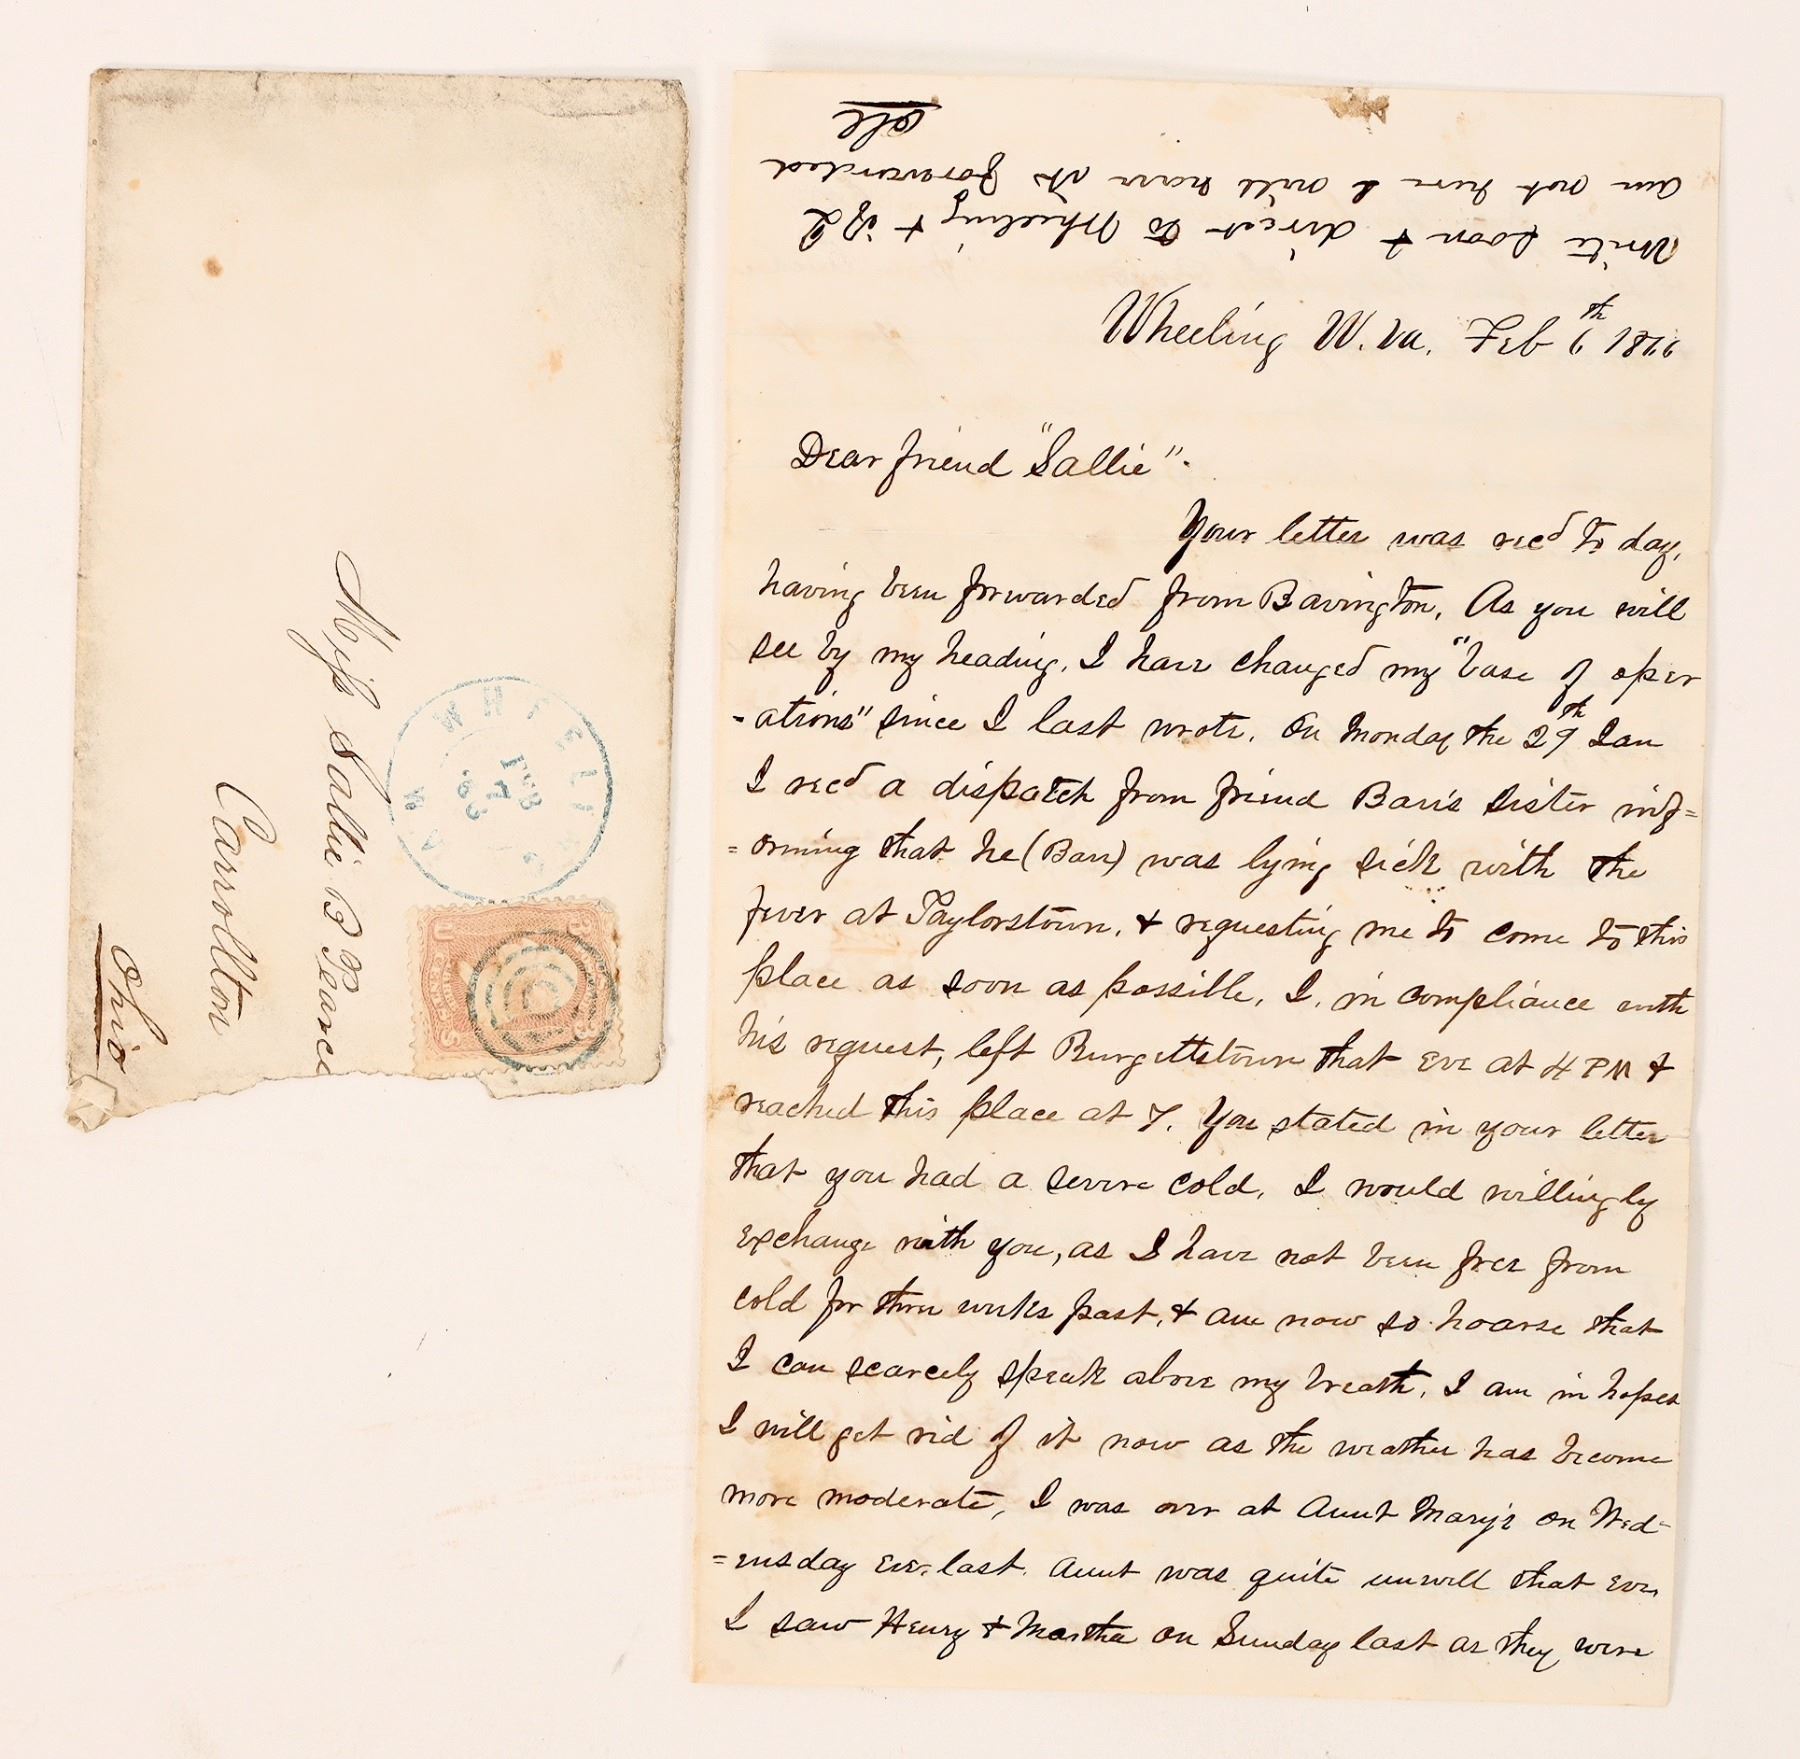 Miss Sallie B Pearce
Carrollton
Ohio
WHEELING
W VA
FEB
7
U 3
3
CENTS
Write soon & direct to Wheeling & if I
am not here I will have it forwarded
Wheeling W. Va. Feb 6th 1866
Dear friend "Sallie".
Your letter was recd To day,
having been forwarded from Bavington. As you will
see by my heading, I have changed my "base of oper
-ations" since I last wrote. On Monday the 29th Jan
I recd a dispatch from friend Barr's sister inf=
=orming that he (Barr) was lying sick with the
fever at Taylorstown, & requesting me to come to this
place as soon as possible, I, in compliance with
his request, left Burgettstown that eve at 4 PM &
reached this place at 7. You stated in your letter
that you had a severe cold, I would willingly
exchange with you, as I have not been free from
cold for three weeks past, & am now so hoarse that
I can scarcely speak above my breath, I am in hopes
I will get rid of it now as the weather has become
more moderate, I was over at Aunt Mary's on Wed-
=ensday eve. last. Aunt was quite unwell that eve,
I saw Henry & Martha on Sunday last as they were